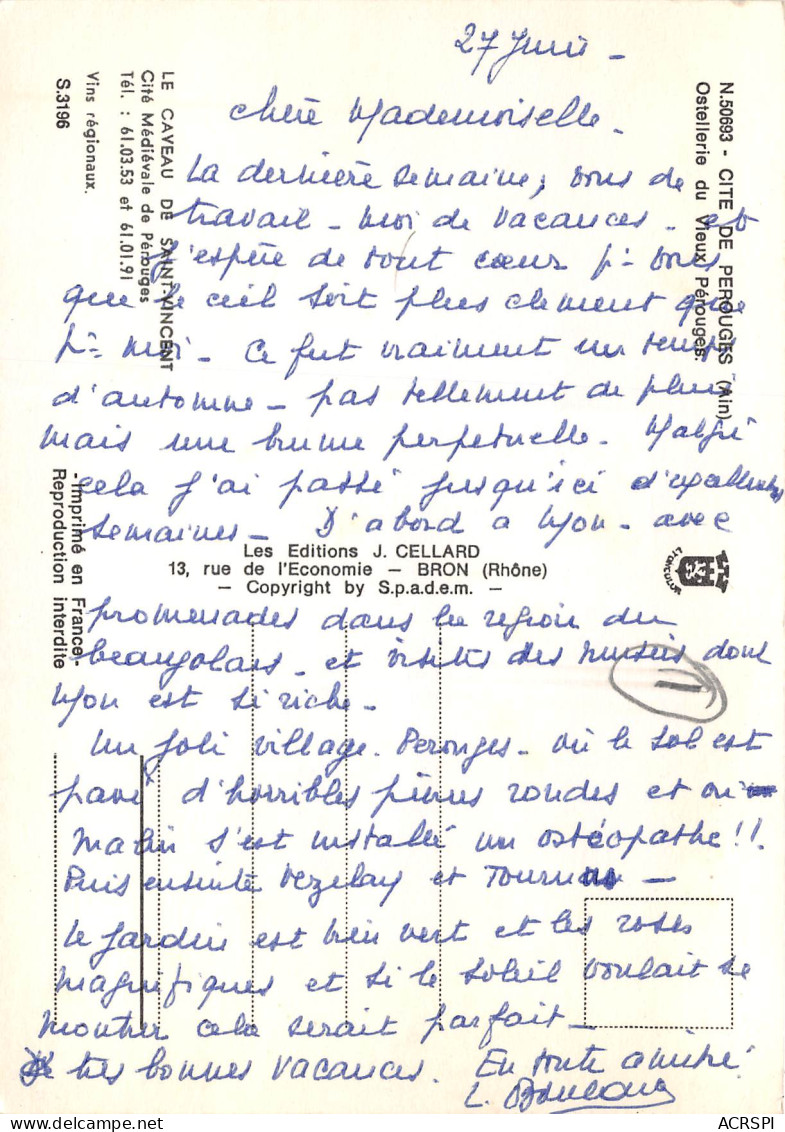 27 Juin -
Chère Mademoiselle.
La dernière semaine, vous de
travail - moi de vacances - et
j'espère de tout cœur pr vous
que le ciel soit plus clément que
pr moi - Ce fut vraiment un temps
d'automne - pas tellement de pluie
mais une brume perpetuelle. Malgré
cela j'ai passé jusqu'ici d'excellentes
semaines - D'abord a Lyon - avec
promenades dans la region du
beaujolais - et visites des musées dont
Lyon est si riche -
Un joli village. Perouges - où le sol est
pavé d'horribles pierres rondes et où
malin s'est installé un ostéopathe!!.
Puis ensuite Vezelay et Tournus -
Le jardin est bien vert et les roses
magnifiques et si le soleil voulait se
montrer cela serait parfait -
De très bonnes vacances. En toute amitié
L.
N.50693 - CITE DE PEROUGES (Ain)
Ostellerie du Vieux Pérouges.
LE CAVEAU DE SAINT-VINCENT
Cité Médiévale de Pérouges
Tél. : 61.03.53 et 61.01.91
Vins régionaux.
S.3196
Les Editions J. CELLARD
13, rue de l'Economie - BRON (Rhône)
- Copyright by S.p.a.d.e.m. -
- Imprimé en France -
Reproduction interdite
ACRSPI